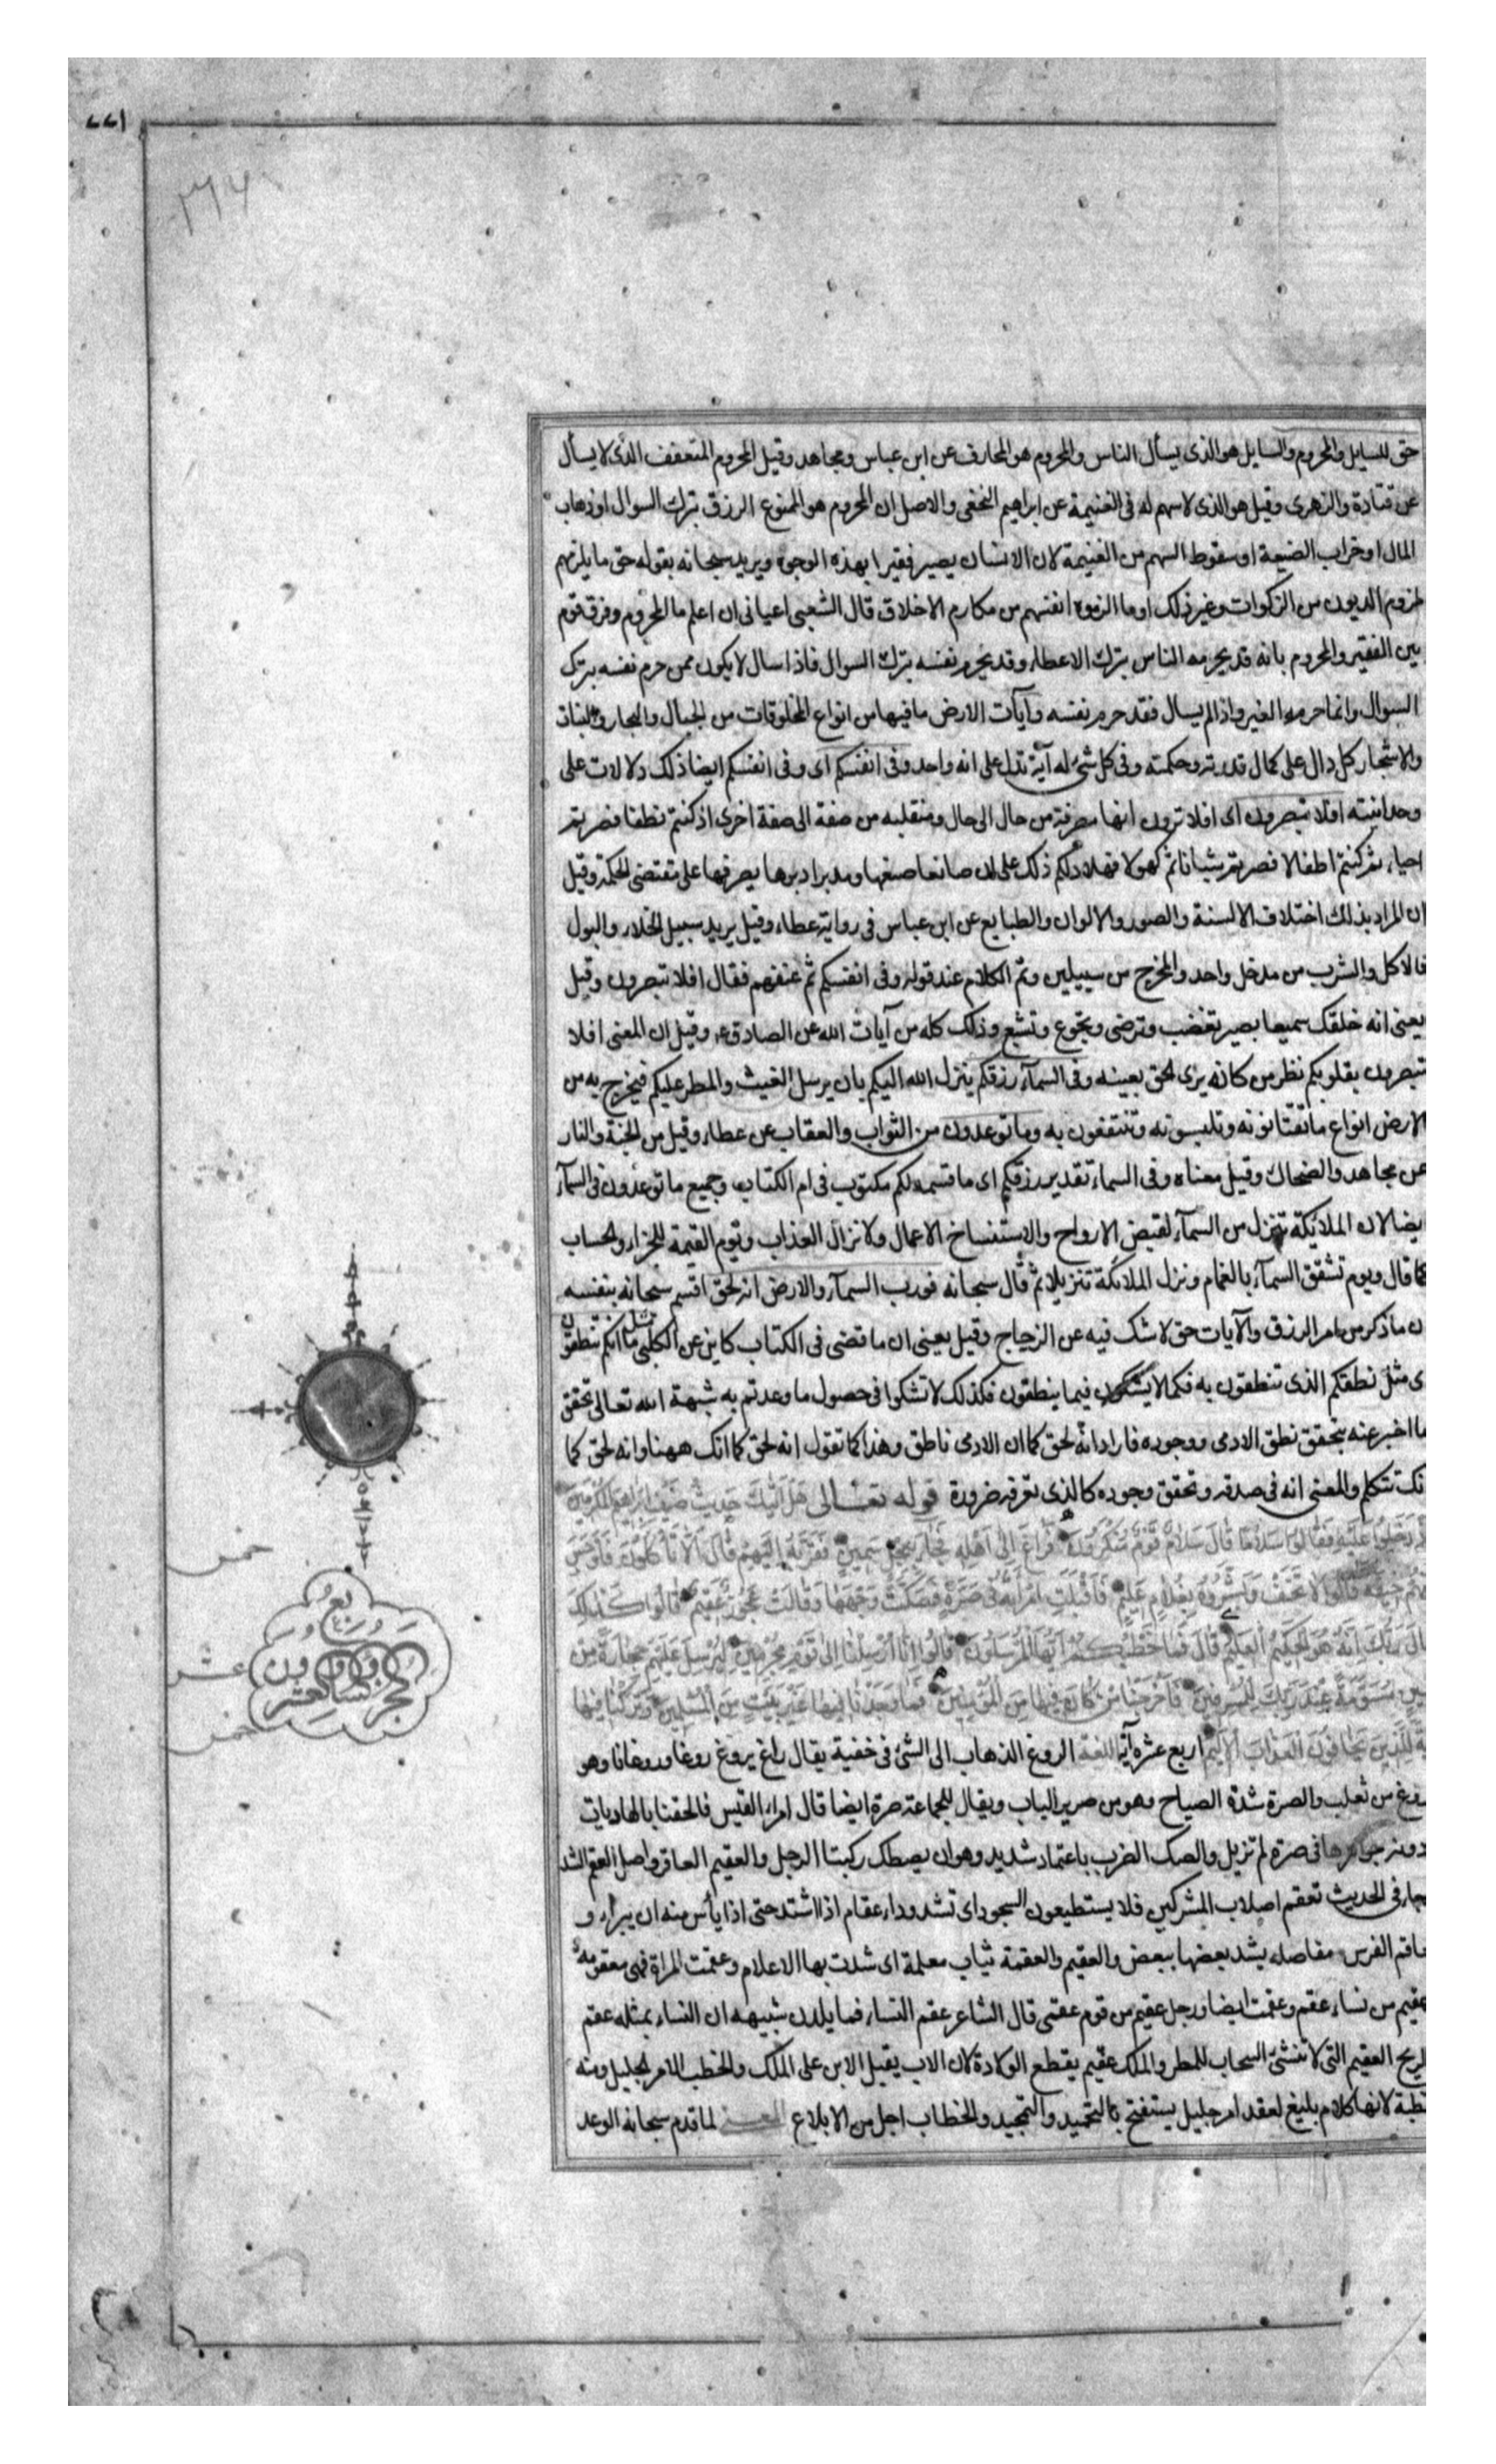 ١٦٦
٣٦٧
حق للسايل والمحروم والسايل هو الذى يسأل الناس والمحروم هو المحارف عن ابن عباس ومجاهد وقيل المحروم المتعفف الذى لا يسأل
عن قتادة والزهرى وقيل هو الذى لا سهم له فى الغنيمة عن ابراهيم النخعى والاصل ان المحروم هو الممنوع الرزق بترك السوال او ذهاب
المال او خراب الضيعة او سقوط السهم من الغنيمة لان الانسان يصير فقيرا بهذه الوجوه ويريد سبحانه بقوله حق ما يلزمهم
لزوم الديون من الزكوات وغير ذلك او ما الزموه انفسهم من مكارم الاخلاق قال الشعبى اعيانى ان اعلم ما المحروم وفرق قوم
بين الفقير والمحروم بانه قد يحرمه الناس بترك الاعطاء وقد يحرم نفسه بترك السوال فاذا سال لا يكون ممن حرم نفسه بترك
السوال وانما حرمه الغير واذا لم يسال فقد حرم نفسه وآيات الارض ما فيها من انواع المخلوقات من الجبال والبحار والنبات
والاشجار كل دال على كمال قدرته وحكمته وفى كل شىء له آية تدل على انه واحد وفى انفسكم اى وفى انفسكم ايضا ذلك دلالات على
وحدانيته افلا تبصرون اى افلا ترون انها مصرفة من حال الى حال ومنتقلبه من صفة الى صفة اخرى اذ كنتم نطفا فصرتم
احياء ثم كنتم اطفالا فصرتم شبانا ثم كهولا فهلا دلكم ذلك على ان صانعا صنعها ومدبرا دبرها يصرفها على مقتضى الحكمة وقيل
ان المراد بذلك اختلاف الالسنة والصور والالوان والطبايع عن ابن عباس فى رواية عطاء وقيل يريد سبيل الخلاء والبول
فالاكل والشرب من مدخل واحد والمخرج من سبيلين وتم الكلام عند قوله وفى انفسكم ثم عنفهم فقال افلا تبصرون وقيل
يعنى انه خلقك سميعا بصير تغضب وترضى وتجوع وتشبع وذلك كله من آيات الله عن الصادق ع وقيل ان المعنى افلا
تبصرون بقلوبكم نظر من كانه يرى الحق بعينه وفى السمآء رزقكم ينزل الله اليكم بان يرسل الغيث والمطر عليكم فيخرج به من
الارض انواع ما تقتاتونه وتلبسونه وتنتفعون به وما توعدون من الثواب والعقاب عن عطاء وقيل من الجنة والنار
عن مجاهد والضحاك وقيل معناه وفى السماء تقدير رزقكم اى ما قسمه لكم مكتوب فى ام الكتاب وجميع ما توعدون فى السمآء
ايضا لان الملائكة تنزل من السمآء لقبض الارواح والاستنساخ الاعمال ولانزال العذاب ويوم القيمة للجزاء والحساب
كما قال ويوم تشقق السمآء بالغمام ونزل الملائكة تنزيلا ثم قال سبحانه فورب السمآء والارض انه لحق اقسم سبحانه بنفسه
ان ما ذكر من امر الرزق والآيات حق لا شك فيه عن الزجاج وقيل يعنى ان ما قضى فى الكتاب كاين عن الكلبى مثل ما انكم تنطقون
اى مثل نطقكم الذى تنطقون به فكما لا يشكون فيما ينطقون فكذلك لا تشكوا فى حصول ما وعدتم به شبهة الله تعالى تحقق
ما اخبر عنه بتحقق نطق الادمى ووجوده فاراد انه لحق كما ان الادمى ناطق وهذا كما تقول انه لحق كما انك ههنا وانه لحق كما
انك تتكلم والمعنى انه فى صدقه وتحقق وجوده كالذى تعرفه ضرورة قوله تعالى هل اتيك حديث ضيف ابراهيم المكرمين
اذ دخلوا عليه فقالوا سلاما قال سلام قوم منكرون فراغ الى اهله فجاء بعجل سمين فقربه اليهم قال الا تأكلون فاوجس
منهم خيفة قالوا لا تخف وبشروه بغلام عليم فاقبلت امرأته فى صرة فصكت وجهها وقالت عجوز عقيم قالوا كذلك
قال ربك انه هو الحكيم العليم قال فما خطبكم ايها المرسلون قالوا انا ارسلنا الى قوم مجرمين لنرسل عليهم حجارة من
طين مسومة عند ربك للمسرفين فاخرجنا من كان فيها من المؤمنين فما وجدنا فيها غير بيت من المسلمين وتركنا فيها
اية للذين يخافون العذاب الاليم اربع عشرة آية اللغة الروغ الذهاب الى الشىء فى خفية يقال راغ يروغ روغا وروغانا وهو
اروغ من ثعلب والصرة شدة الصياح وهو من صرير الباب ويقال للجماعة صرة ايضا قال امرء القيس فالحقنا بالهاديات
ودونه جواحرها فى صرة لم تزيل والصك الضرب باعتماد شديد وهو ان يصطك ركبتا الرجل والعقيم العاقر واصل العقم الشد
وجاء فى الحديث تعقم اصلاب المشركين فلا يستطيعون السجود اى تشد وداء عقام اذا اشتد حتى اذا يأس منه ان يبرأ و
معاقم الفرس مفاصله يشد بعضها ببعض والعقيم والعقمة ثياب معلمة اى شدت بها الاعلام وعقمت المراة فهى معقومة
عقيم من نساء عقم وعقمت ايضا ورجل عقيم من قوم عقمى قال الشاعر عقم النساء فما يلدن شبيهه ان النساء بمثله عقم
والريح العقيم التى لا تنشئ السحاب للمطر والملك عقيم يقطع الولادة لان الاب يقتل الابن على الملك والخطب الامر الجليل ومنه
الخطبة لانها كلام بليغ لعقد امر جليل يستفتح بالتحميد والتمجيد والخطاب اجل من الابلاغ المعنى لما قدم سبحانه الوعد
خمس
ربع
الجزو
السابع
عشر
خمس